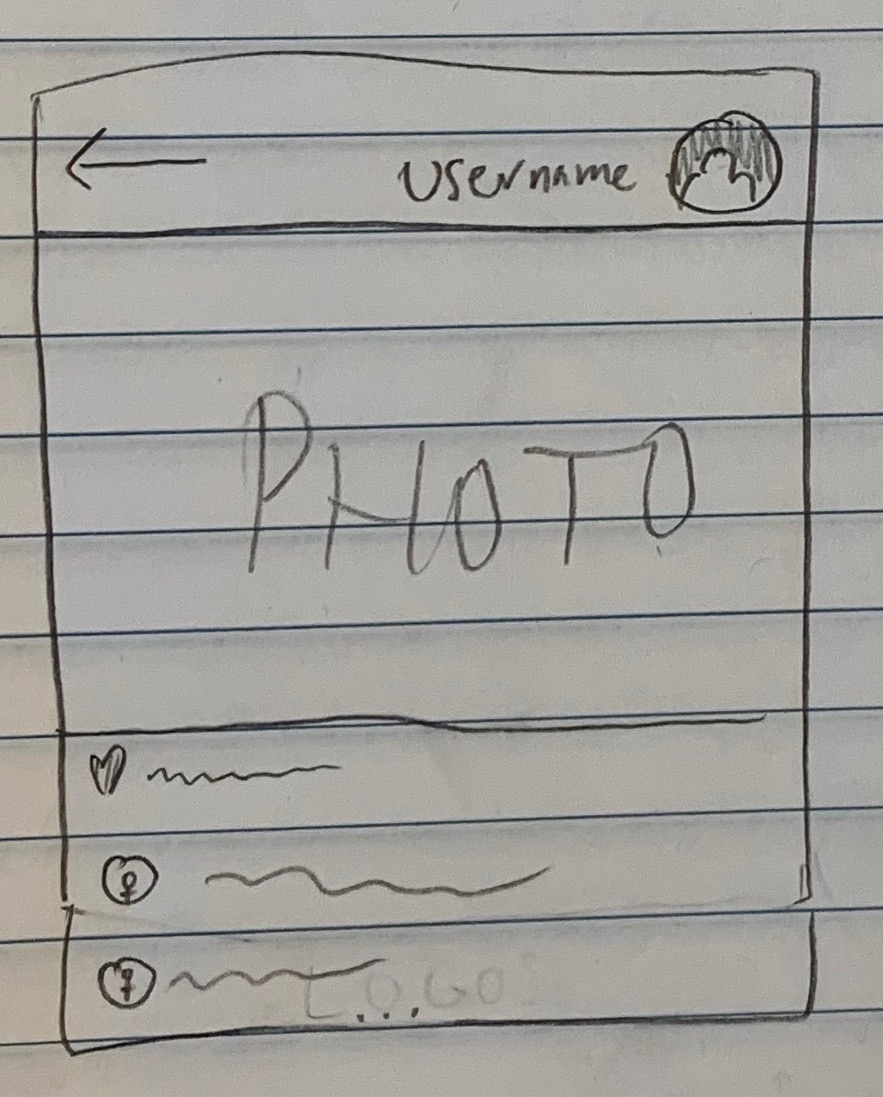 Username
PHOTO
LOGO
...